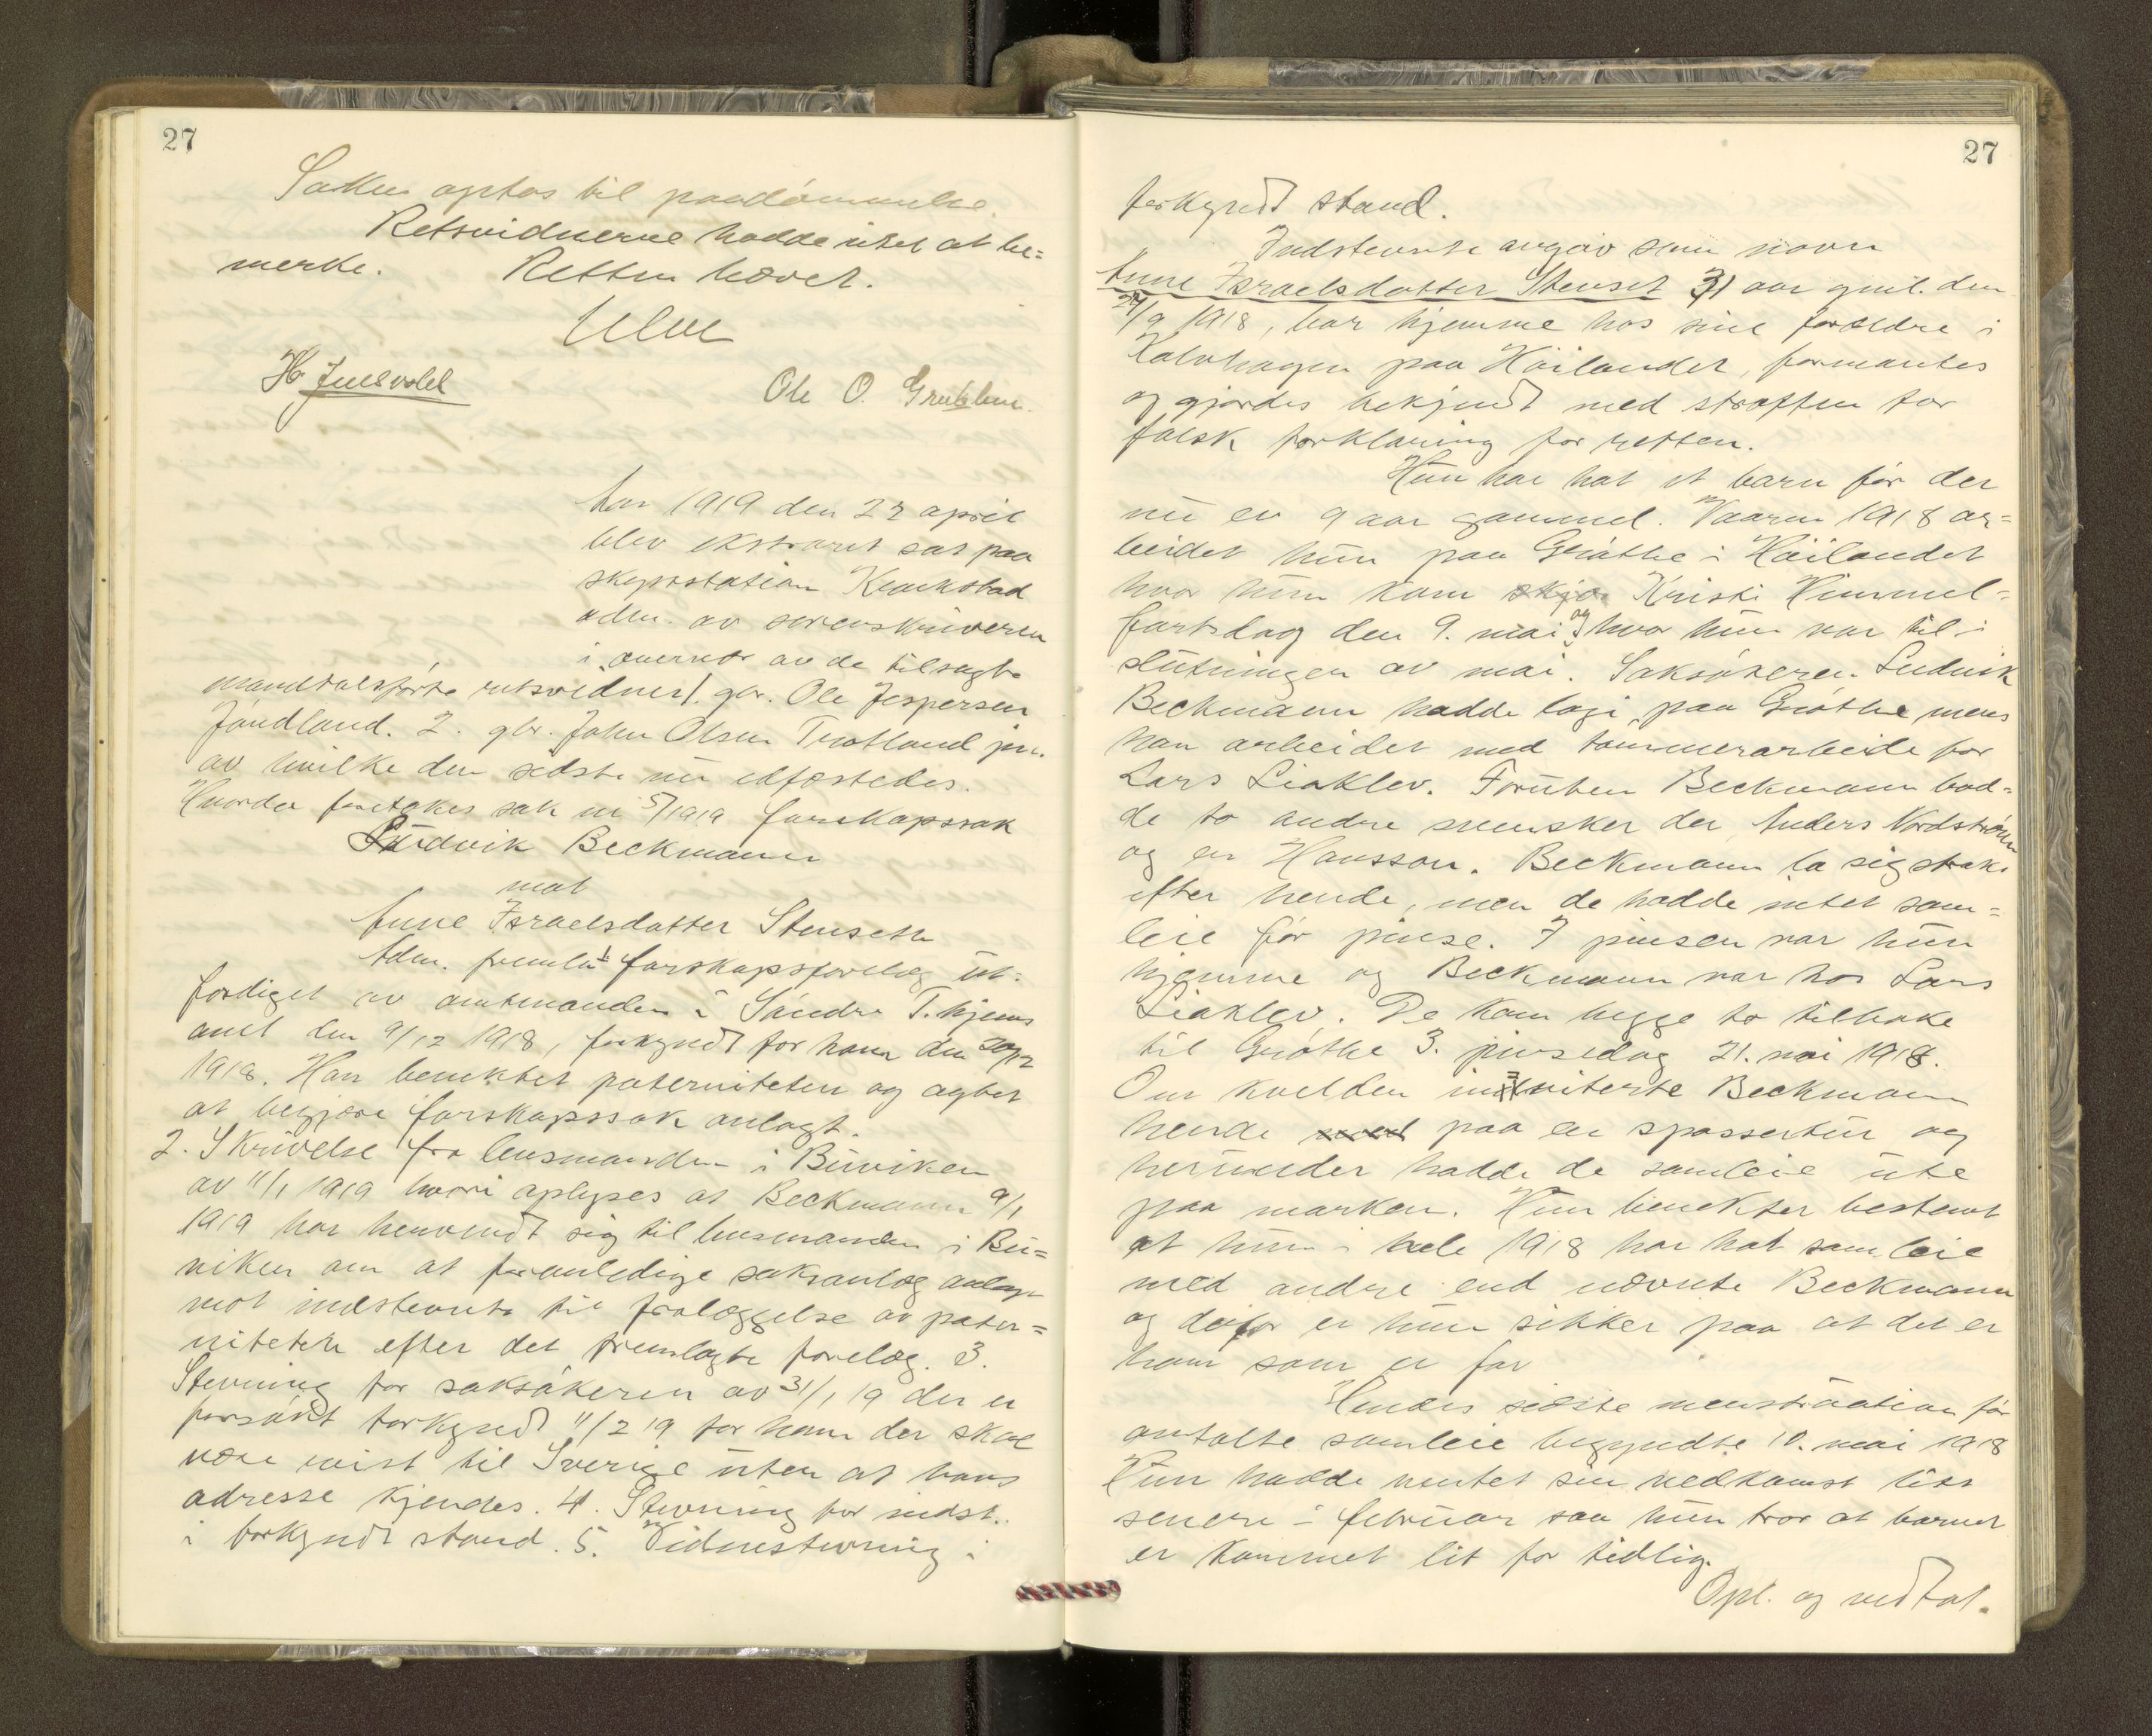 27
Saken optas til paadömmelse.
Retsvidnerne hadde intet at be=
merke. Retten hævet.
Ulve
H. Juulsvold
Ole O.
Aar 1919 den 22 april
blev ekstraret sat paa
skysstation
adm. av sorenskriveren
i overvær av de tilsagte
mandtalsförte retsvidner 1. gbr. Ole Jespersen
Jöndland. 2. gbr. John Olsen jun.
av hvilke den sidste nu edfæstedes.
Hvorda foretokes sak nr 5/1919 farskapssak
Ludvik Beckmann
mot
Anne Israelsdatter Stenseth
Adm. fremla 1 farskapsforelæg ut=
færdiget av amtmanden i Söndre T.hjems
amt den 9/12 1918, forkyndt for ham den 20/12
1918. Han benektet paterniteten og agtet
at begjære farskapssak anlagt.
2. Skrivelse fra lensmanden i Buviken
av 11/1 1919 hvori oplyses at Beckmann 9/1
1919 har henvendt sig til lensmanden i Bu=
viken om at foranledige saksanlæg anlagt
mot indstevnte til fralæggelse av pater=
niteten efter det fremlagte forelæg. 3.
Stevning for saksökeren av 31/1 19 der er
forsökt forkyndt 11/2 19 for ham der skal
være reist til Sverige uten at hans
adresse kjendes. 4. Stevning for indst.
i forkyndt stand. 5. Vidnestevning i
27
forkyndt stand.
Indstevnte avgav som navn
Anne Israelsdatter Stenset 31 aar gml. den
27/9 1918, bor hjemme hos sine forældre i
Kalvhagen paa Höilandet, formantes
og gjordes bekjendt med straffen for
falsk forklaring for retten.
Hun har hat et barn för der
nu er 9 aar gammel. Vaaren 1918 ar=
beidet hun paa Gröthe i Höilandet
hvor hun kom Kristi Himmel=
fartsdag den 9. mai og hvor hun var til i
slutningen av mai. Saksökeren Ludvik
Beckmann hadde logi paa Gröthe mens
han arbeidet med tömmerarbeide for
Lars Liaklev. Foruten Beckmann bod=
de to andre svensker der Anders Nordström
og en Hansson. Beckmann la sig straks
efter hende, men de hadde intet sam=
leie för pinse. I pinsen var hun
hjemme og Beckmann var hos Lars
Liaklev. De kom begge to tilbake
til Gröthe 3. pinsedag 21. mai 1918.
Om kvelden inviterte Beckmann
hende med paa en spassertur og
herunder hadde de samleie ute
paa marken. Hun benekter bestemt
at hun i hele 1918 har hat samleie
med andre end nævnte Beckmann
og derfor er hun sikker paa at det er
ham som er far
Hendes sidste menstruation för
omtalte samleie begyndte 10. mai 1918
Hun hadde ventet sin nedkomst litt
senere i februar saa hun tror at barnet
er kommet lit for tidlig.
Opl. og vedtat.